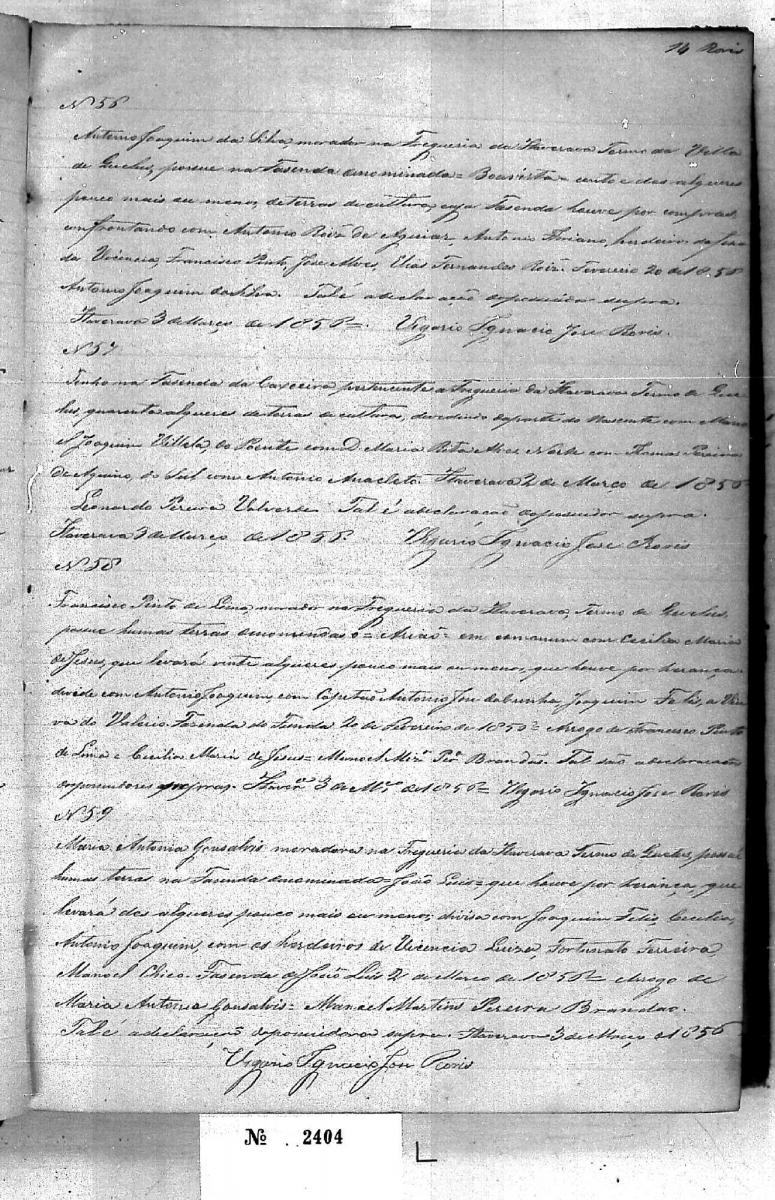 14 Rovis
Nº 56
Antonio Joaquim da Silva, morador na Freguezia da Itaverava Termo da Villa
de Queluz, possue na Fasenda denominada = Boavista = cento e dez alqueres
pouco mais ou menos, de terras de cultura, cuja Fasenda houve por compras,
confrontando com Antonio Roiz de Aguiar, Antonio herdeiros de
da Vicencia, Francisco Pinto, Jose Alves, Elias Fernandes Roiz. Fevereiro 20 de 1856
Antonio Joaquim da Silva. Tal é a declaração do possuidor supra.
Itaverava 3 de Março de 1856 =. Vigario Ignacio Jose Rovis.
Nº 57
Tenho na Fasenda da pertencente a Freguezia da Itaverava Termo de Que
luz, quarenta alqueres de terras de cultura, devedindo da parte do Nascente com Mano
el Joaquim Villela, do Poente com D. Maria Rita Alves Norte com Thomas Pereira
de Aquino, do Sul com Antonio Anacleto. Itaverava 2 de Março de 1856
Leonardo Pereira Valverde. Tal é a declaração do possuidor supra.
Itaverava 3 de Março de 1856. Vigario Ignacio Jose Rovis
Nº 58
Francisco Pinto de Lima, morador na Freguezia da Itaverava, Termo de Queluz,
possue humas terras em commum com Cecilia Maria
de Jesus, que levará vinte alqueres pouco mais ou menos, que houve por herança
divide com Antonio Joaquim, com Capitão Antonio Jose da Cunha, Joaquim Felis, a Viu
va do Valerio. Fazenda do 20 de Fevereiro de 1856 = Arrogo de Francisco Pinto
de Lima e Cecilia Maria de Jesus = Manoel Miz Pra Brandão. Tal são a declaração
dos possuidores supra. Itavera 3 de Mço de 1856 = Vigario Ignacio Jose Rovis
Nº 59
Maria Antonia Gonsalvis moradora na Freguezia da Itaverava Termo de Queluz, possue
humas terras na Fasenda denominada = João Luis = que houve por herança, que
levará dez alqueres pouco mais ou menos; divisa com Joaquim Felis, Cecilia,
Antonio Joaquim, com os herdeiros de Vicencia Luiza, Fortunato Ferreira,
Manoel Chico. Fasenda de João Luis 2 de Março de 1856 = Arrogo de
Maria Antonia Gonsalvis = Manoel Martins Pereira Brandão.
Tal é a declaração da possuidora supra. Itaverava 3 de Março de 1856
Vigario Ignacio Jose Rovis
Nº 2404